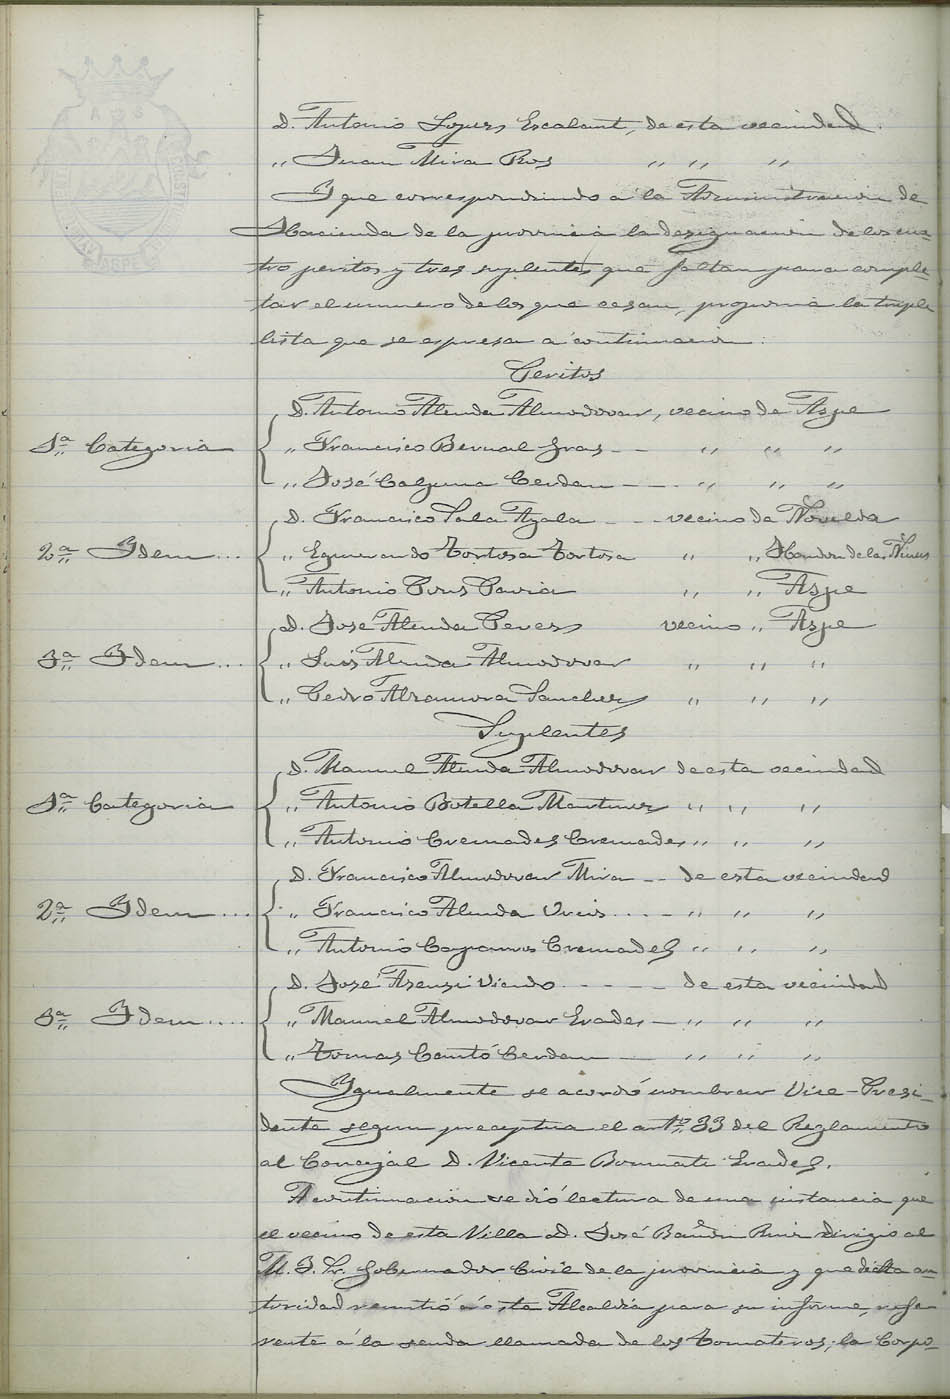 D. Antonio Lopers Escalant, de esta vecindad.
,, Juan Mira Ros ,, ,, ,,
Y que correspondiendo á la Administracion de
Hacienda de la provincia la designacion de los cua-
tro peritos y tres suplentes que faltan para comple-
tar el numero de los que cesan, proponia la triple
lista que se espresa á continuacion:
Peritos
D. Antonio Alenda Almodovar, vecino de Aspe
1ª Categoria ,, Francisco Bernal Gras -- ,, ,, ,,
,, José Calpena Cerdan --- ,, ,, ,,
D. Francisco Sala Azala - - - vecino de Novelda
2ª Idem... ,, Eguerando Tortosa Tortosa ,, ,, Hondon de las Nieves
,, Antonio Pons Pavia ,, ,, Aspe
D. José Alenda Perers vecino ,, Aspe
3ª Idem... ,, Luis Alenda Almodovar ,, ,, ,,
,, Pedro Alzamora Sanchers ,, ,, ,,
Suplentes
D. Manuel Alenda Almodovar de esta vecindad
1ª Categoria ,, Antonio Botella Martiners ,, ,, ,,
,, Antonio Cremades Cremades ,, ,, ,,
D. Francisco Almodovar Mira -- de esta vecindad
2ª Idem... ,, Francisco Alenda Urios .... - ,, ,, ,,
,, Antonio Caparros Cremades ,, ,, ,,
D. José Asensi Viendo - - - - - de esta vecindad
3ª Idem.... ,, Manuel Almodovar Erades - ,, ,, ,,
,, Tomas Cantó Cerdan --- ,, ,, ,,
Ygualmente se acordó nombrar Vice-Presi-
dente segun preceptua el artº 33 del Reglamento
al Concejal D. Vicente Bonmati Erades.
A continuacion se dió lectura de una instancia que
el vecino de esta Villa D. José Ruiz dirigio al
M. Y. Sr. Gobernador Civil de la provincia y que dicha au-
toridad remitió á ésta Alcaldia para su informe, refe-
rente á la senda llamada de los Tomateros; la Corpo-